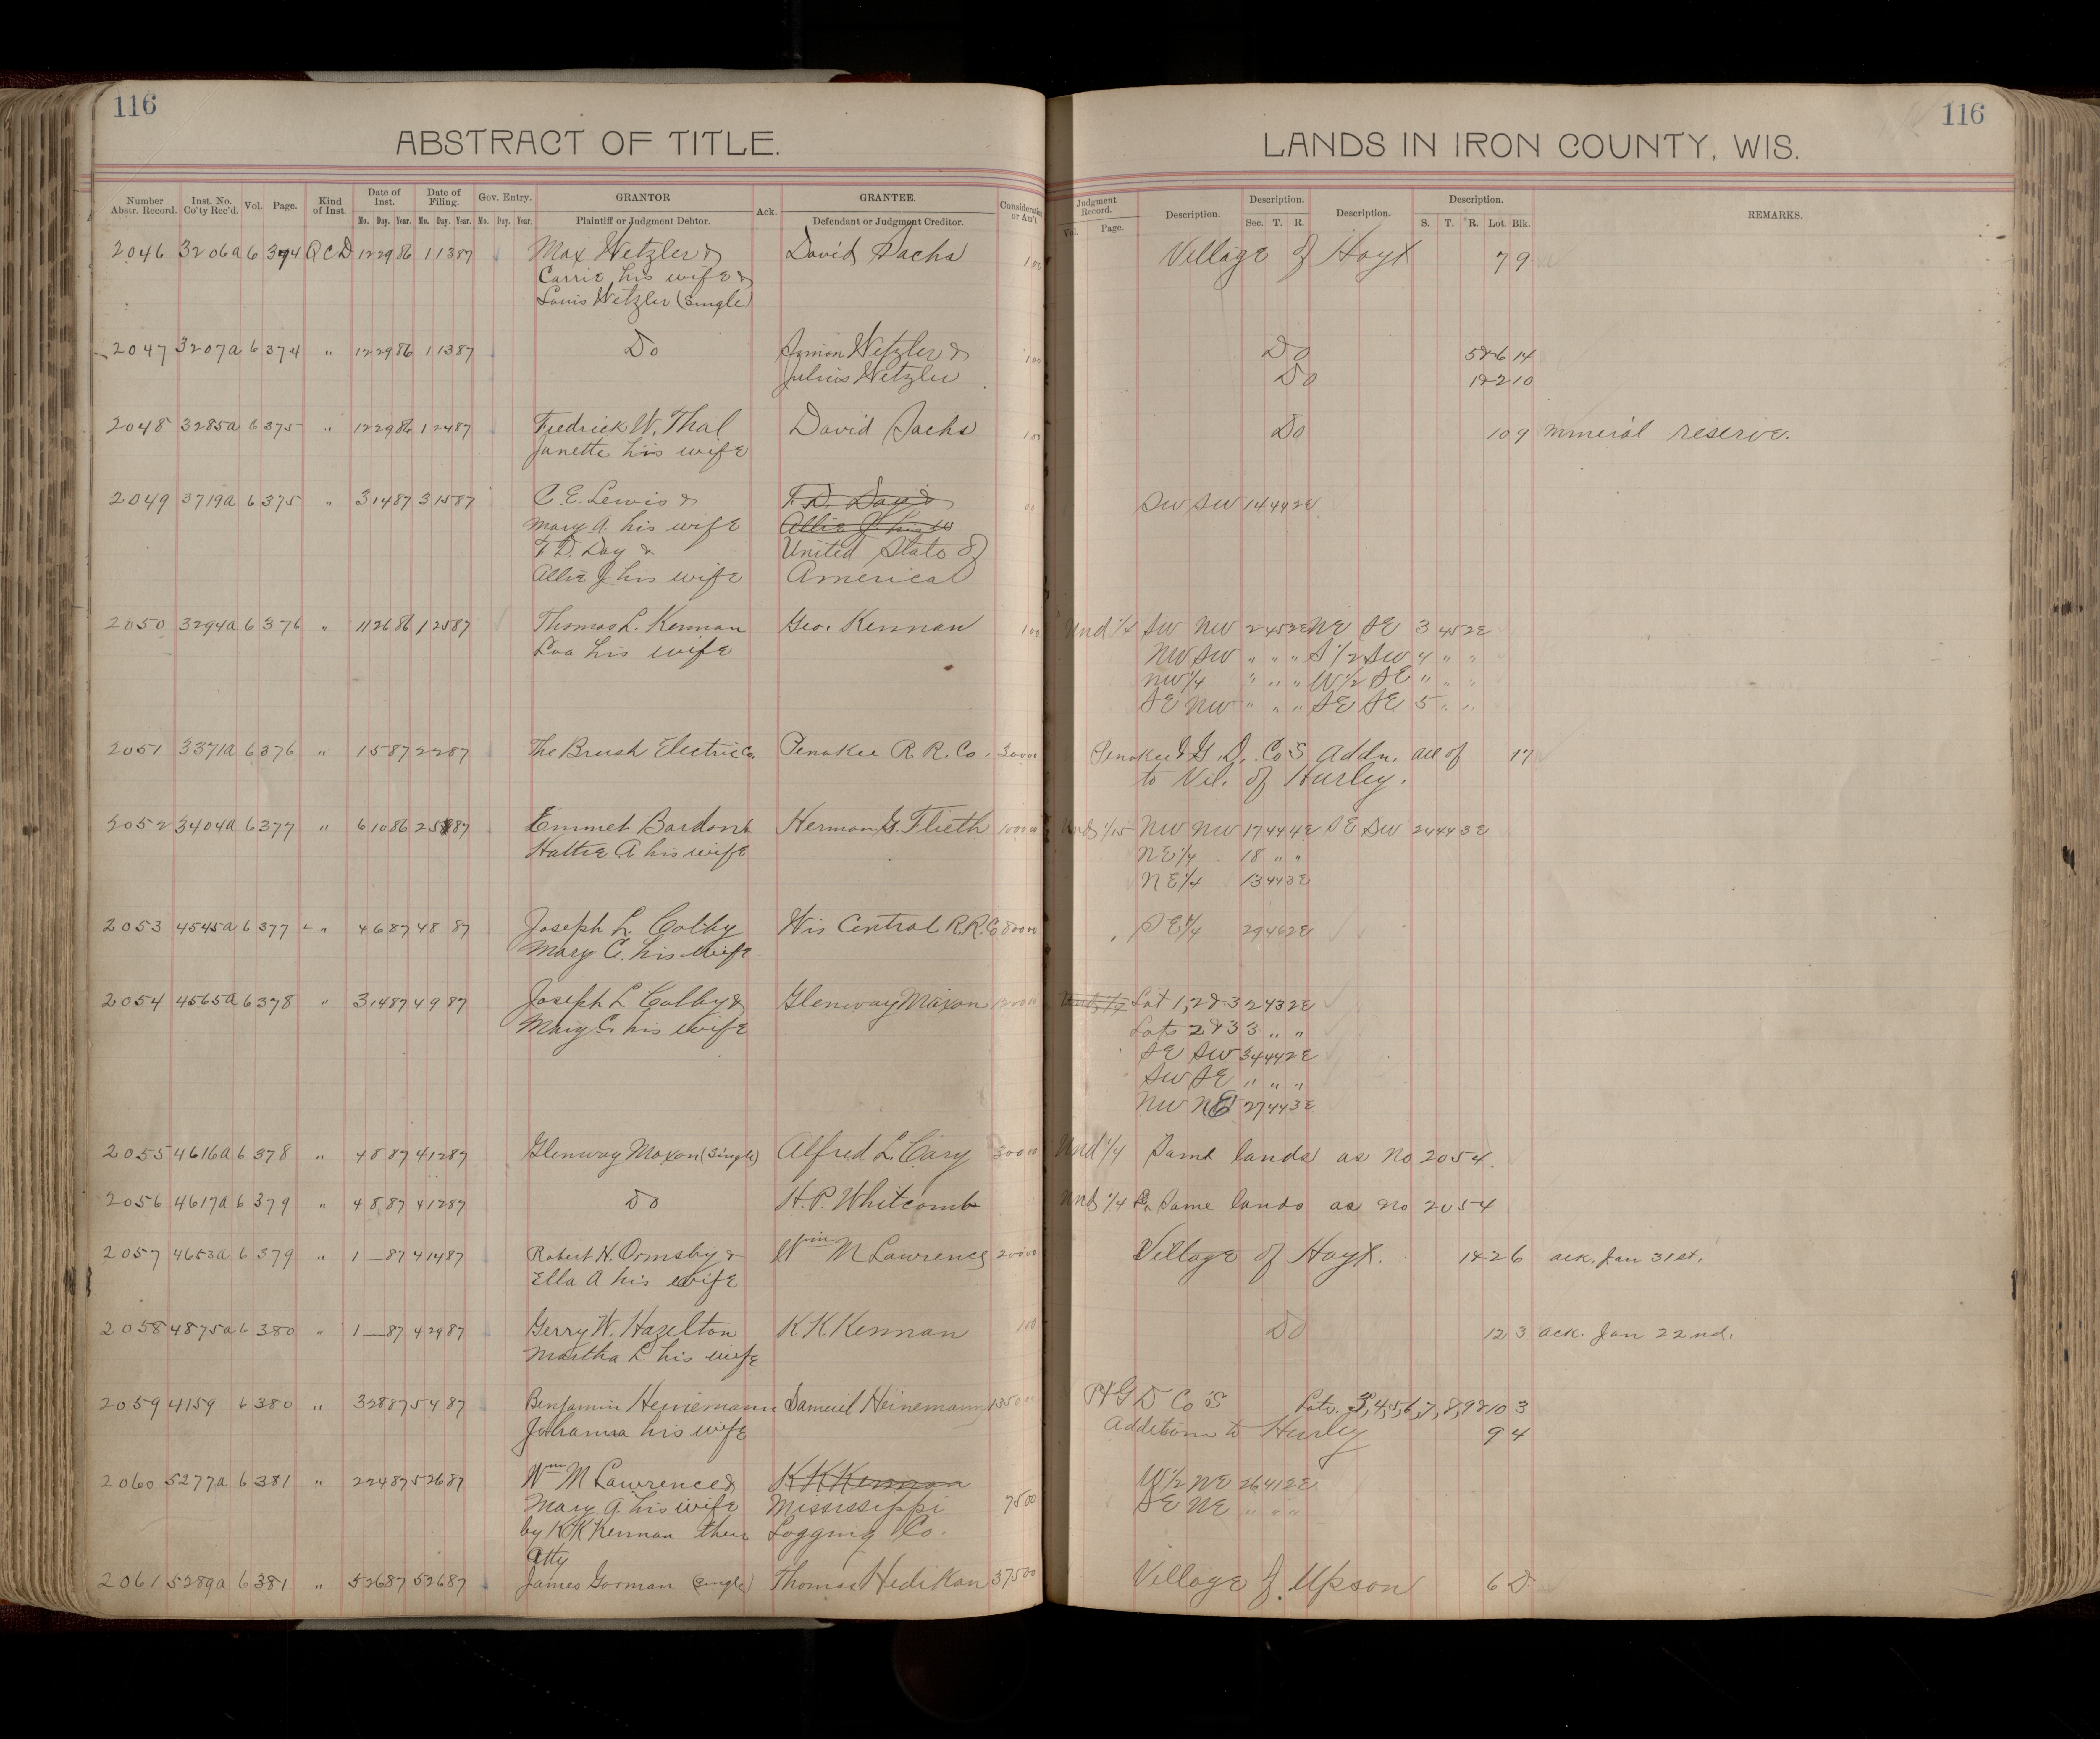 116
ABSTRACT OF TITLE.
116
LANDS IN IRON COUNTY, WIS.
Number Abstr. Record. Inst. No. Co'ty Rec'd. Vol. Page. Kind of Inst. Date of Inst. Mo. Day. Year. Date of Filing. Mo. Day. Year. Gov. Entry. Mo. Day. Year. GRANTOR Plaintiff or Judgment Debtor. Ack. GRANTEE. Defendant or Judgment Creditor. Consideration or Am't.
Judgment Record. Vol. Page. Description. Description. Sec. T. R. Description. Description. S. T. R. Lot. Blk. REMARKS.
2046 3206a 6 374 QCD 12 29 86 1 13 87 Max Wetzler & David Sachs 1 00 Village of Hoyt 7 9
Carrie his wife &
Louis Wetzler (single)
2047 3207a 6 374 " 12 29 86 1 13 87 Do Simon Wetzler & 1 00 Do 5&6 14
Julius Wetzler Do 1&2 10
2048 3285a 6 375 " 12 29 86 1 24 87 Fredrick W. Thal David Sachs 1 00 Do 10 9 mineral reserve.
Janette his wife
2049 3719a 6 375 " 3 14 87 3 15 87 C. E. Lewis & F. D. Day & 00 SW SW 14 44 2E
Mary A. his wife Allie J. his w
F. D. Day & United Stats of
Allie J his wife America
2050 3294a 6 376 " 11 26 86 1 25 87 Thomas L. Kennan Geo. Kennan 1 00 Und 1/4 SW NW 2 45 2E NE SE 3 45 2E
Loa his wife NW SW " " " S 1/2 SW 4 " "
NW 1/4 " " " W 1/2 SE " " "
SE NW " " " SE SE 5 " "
2051 3371a 6 376 " 1 5 87 2 2 87 The Brush Electric Co. Penokee R. R. Co. 300 00 Penokee & G. D. Co S Addn. all of 17
to Vil. of Hurley.
2052 3404a 6 377 " 6 10 86 2 5 87 Emmet Bardon & Herman G. Flieth 1000 00 Und 1/15 NW NW 17 44 4E SE SW 24 44 3E
Hattie A his wife NE 1/4 18 " "
NE 1/4 13 44 3E
2053 4545a 6 377 " 4 6 87 4 8 87 Joseph L Colby Wis Central R.R. Co 800 00 SE 1/4 29 46 2E
Mary C. his wife
2054 4565a 6 378 " 3 14 87 4 9 87 Joseph L Colby & Glenway Maxon 1200 00 Lot 1,2&3 2 43 2E
Mary C. his wife Lots 2&3 3 " "
SE SW 34 44 2E
SW SE " " "
NW NE 27 44 3E
2055 4616a 6 378 " 4 8 87 4 12 87 Glenway Maxon (single) Alfred L. Cary 300 00 Und 1/4 Same lands as No 2054.
2056 4617a 6 379 " 4 8 87 4 12 87 Do H. P. Whitcomb Und 1/4 Same lands as No 2054
2057 4653a 6 379 " 1 — 87 4 14 87 Robert H. Ormsby & Wm M Lawrence 200 00 Village of Hoyt. 1&2 6 ack. Jan 31st.
Ella A his wife
2058 4875a 6 380 " 1 — 87 4 29 87 Gerry W. Hazelton K K Kennan 1 00 Do 12 3 ack. Jan 22nd.
Martha L his wife
2059 4159 6 380 " 3 28 87 5 4 87 Benjamin Heinemann Samuel Heinemann 1350 00 P & G D Co S Lots. 3,4,5,6,7,8,9&10 3
Johanna his wife Addition to Hurley 9 4
2060 5277a 6 381 " 2 24 87 5 26 87 Wm M Lawrence & K K Kennan W 1/2 NE 26 41 2E
Mary A. his wife Mississippi 75 00 SE NE " " "
by K K Kennan their Logging Co.
Atty
2061 5289a 6 381 " 5 26 87 5 26 87 James Gorman (single) Thomas Hedikan 375 00 Village of Upson 6 D